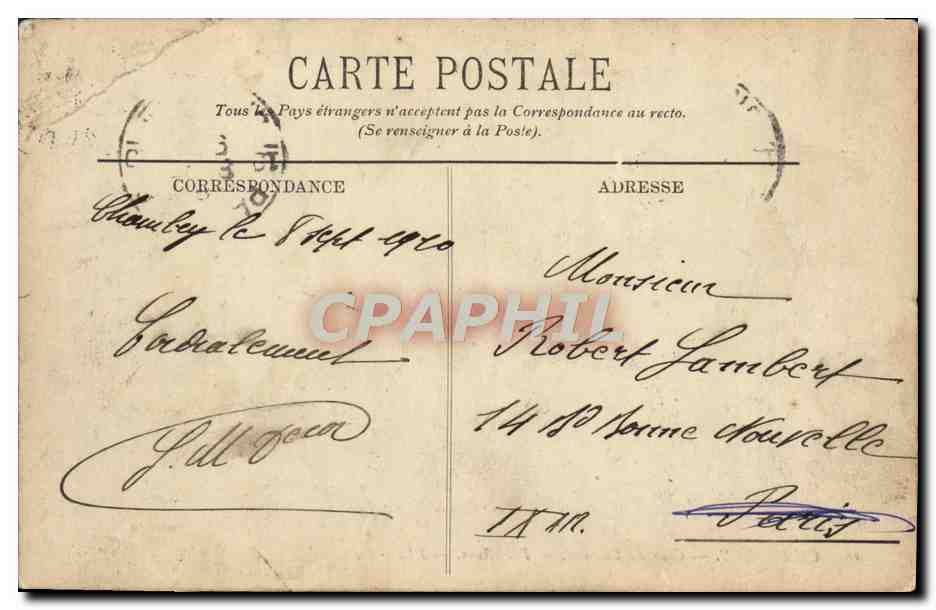 CARTE POSTALE
Tous les Pays étrangers n'acceptent pas la Correspondance au recto.
(Se renseigner à la Poste).
CORRESPONDANCE
le 8 sept 1910
Cordialement
ADRESSE
Monsieur
Robert Lambert
14 Bd Bonne Nouvelle
Paris
CPAPHIL